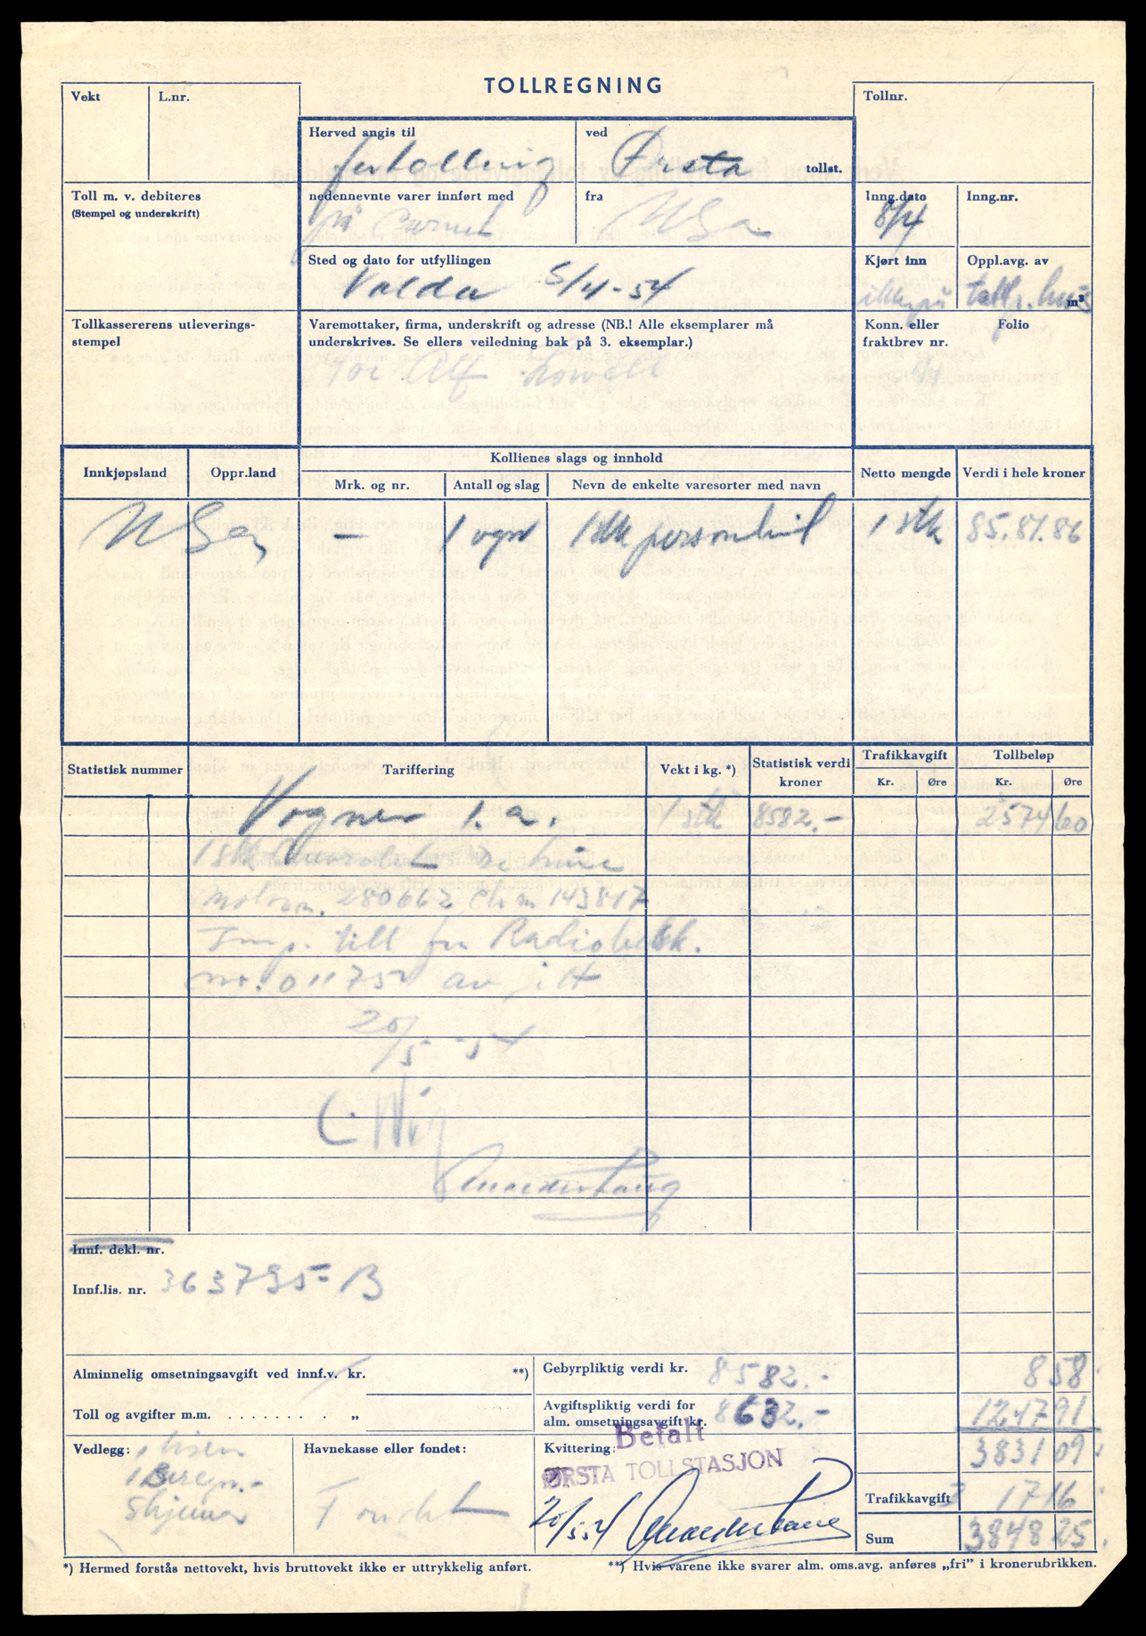 TOLLREGNING
Vekt
L.nr.
Tollnr.
Herved angis til
fortolling
ved
Ørsta
tollst.
Toll m. v. debiteres
(Stempel og underskrift)
nedennevnte varer innført med
på
fra
USA
Inng.dato
8/4
Inng.nr.
Sted og dato for utfyllingen
Volda 5/4-54
Kjørt inn
Oppl.avg. av
m³
Tollkassererens utleverings-
stempel
Varemottaker, firma, underskrift og adresse (NB.! Alle eksemplarer må
underskrives. Se ellers veiledning bak på 3. eksemplar.)
for Alf
Konn. eller
fraktbrev nr.
Folio
Innkjøpsland
Oppr.land
Kollienes slags og innhold
Mrk. og nr.
Antall og slag
Nevn de enkelte varesorter med navn
Netto mengde
Verdi i hele kroner
USA
–
1 vogn
1 stk personbil
1 stk
85.81.86
Statistisk nummer
Tariffering
Vekt i kg. *)
Statistisk verdi
kroner
Trafikkavgift
Kr.
Øre
Tollbeløp
Kr.
Øre
Vogner 1. a.
1 stk
8582.-
2574 60
1 stk Chevrolet De luxe
Motornr. 280662 Ch nr 143817
Imp. till fra Radiobesk.
nr. 011752 av
20/5-54
Innf. dekl. nr.
Innf.lis. nr. 363795-B
Alminnelig omsetningsavgift ved innf.v. kr.
**)
Gebyrpliktig verdi kr. 8582.-
858
Toll og avgifter m.m. . . . . . . . . „
Avgiftspliktig verdi for
alm. omsetningsavgift kr. 8632.-
1247 91
3831 09
Vedlegg:
Skjema
Havnekasse eller fondet:
Fondet
Kvittering:
Betalt
ØRSTA TOLLSTASJON
20/5 54
Trafikkavgift
17 16
Sum
3848 25
*) Hermed forstås nettovekt, hvis bruttovekt ikke er uttrykkelig anført.
**) Hvis varene ikke svarer alm. oms.avg. anføres „fri” i kronerubrikken.